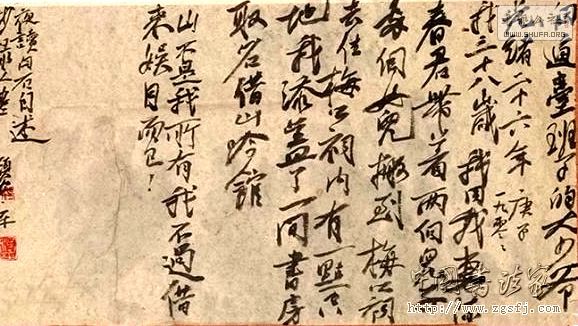 臺班子的
光緒二十六年 庚子 一九〇〇
我三十八歲 我同我妻
春君帶着兩個兒
兩個女兒搬到梅公祠
去住梅公祠内有一點空
地我添蓋了一間書房
取名借山吟館
山不是我所有我不過借
來娛目而已！
夜讀白石自述
WWW.SHUFA.ORG
中国书法家
http://www.zgsfj.com